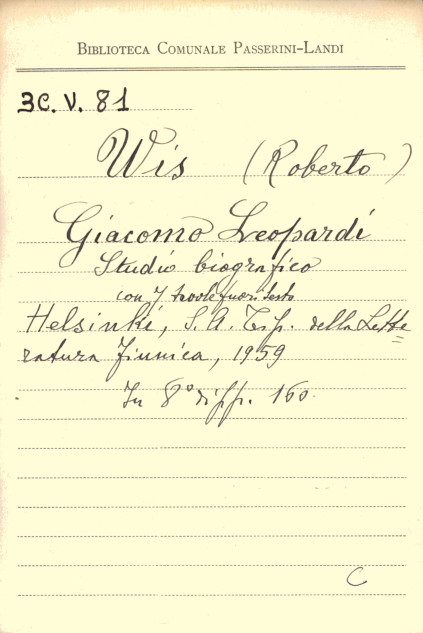 BIBLIOTECA COMUNALE PASSERINI-LANDI
3C. V. 81
Wis (Roberto)
Giacomo Leopardi
Studio biografico
con 7 tavole fuori testo
Helsinki, S. A. Tip. della Lette=
ratura Finnica, 1959
In 8° di pp. 160
C